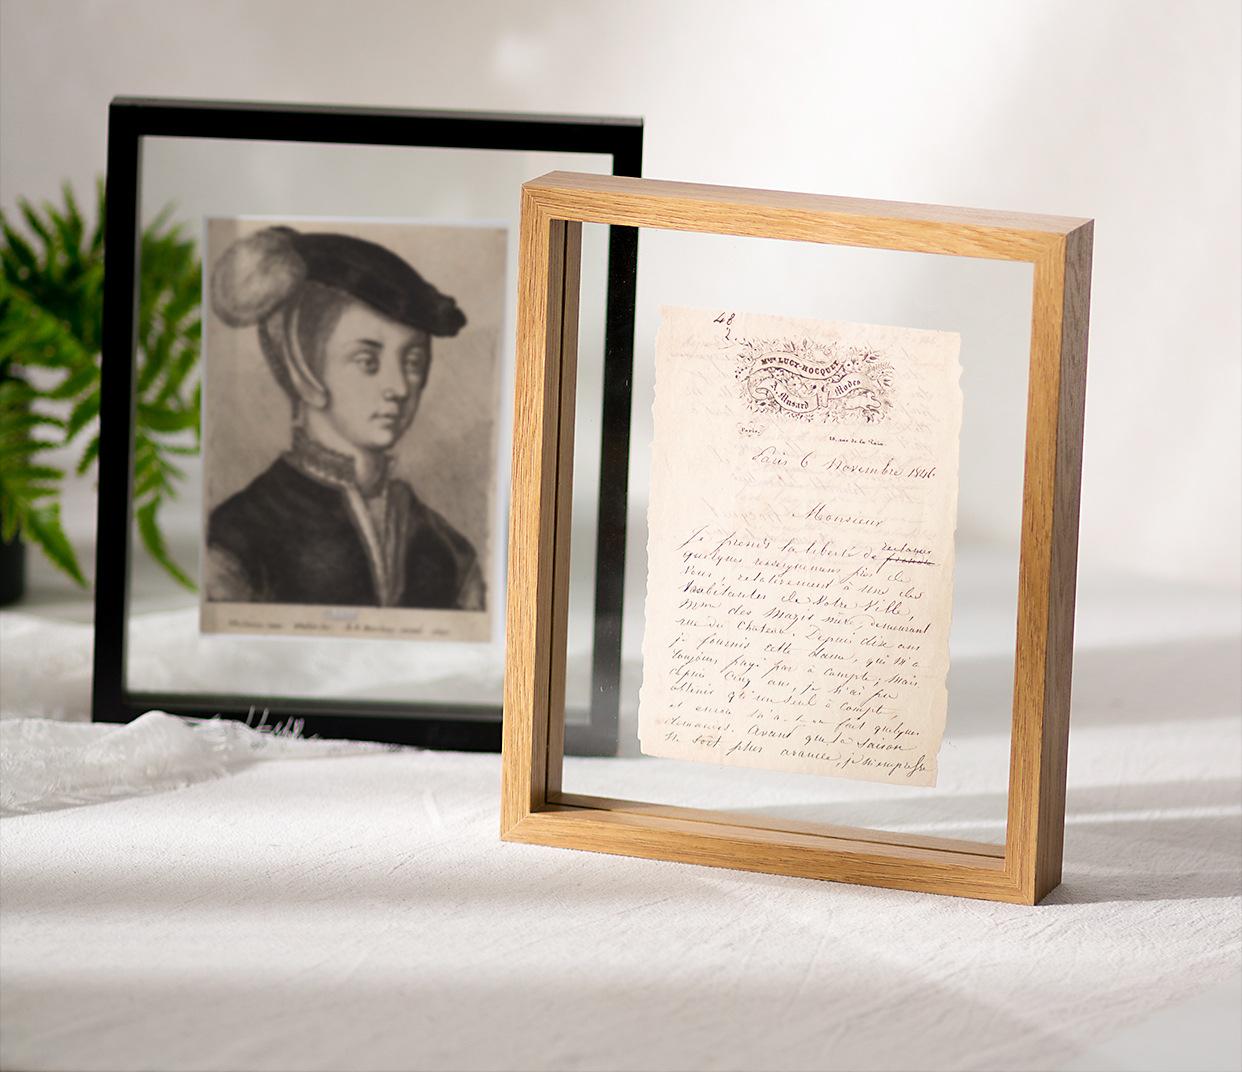 48
2.
Mme LUCY-HOCQUET
A. Musard Modes
Paris.
Paris 6 Novembre 1846.
Monsieur
Je prends la liberté de
quelques renseignemens près de
Vous, relativement à une des
habitantes de Notre Ville,
Mme des mazis mère, demeurant
rue du Chateau. Depuis dix ans
je fournis cette dame, qui m'a
toujours payé par à compte; mais
depuis cinq ans, je n'ai pu
obtenir qu'un seul à compte,
et encore m'a-t-on fait quelques
demandes. Avant que la saison
ne soit plus avancée, je m'empresse